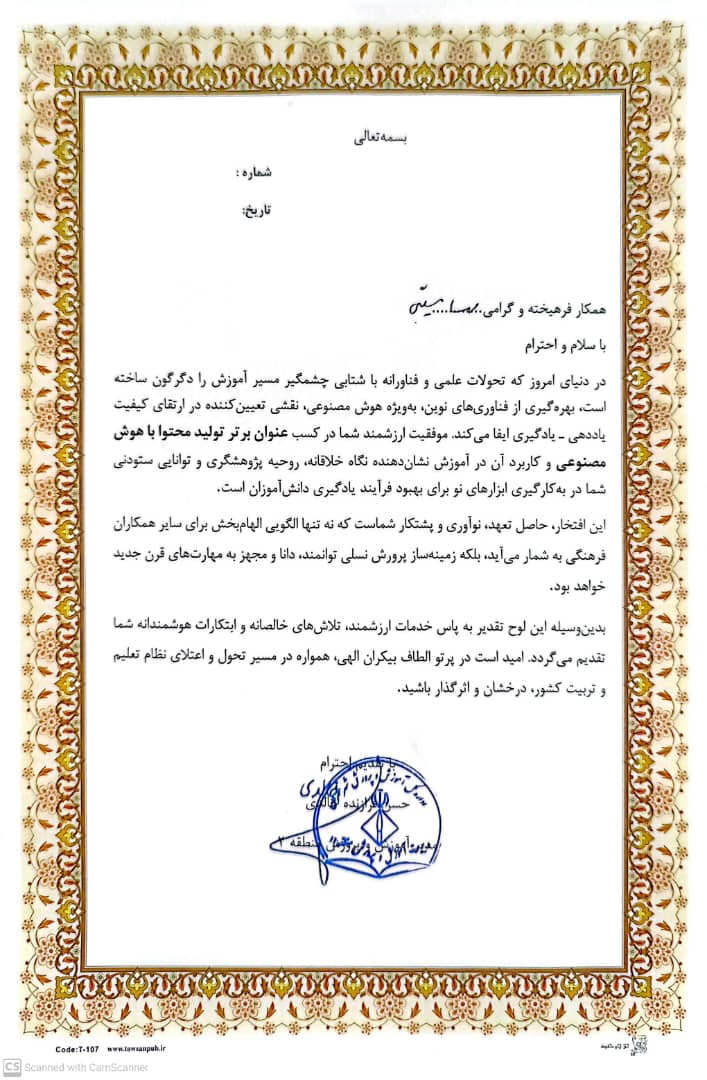 بسمه‌تعالی
شماره :
تاریخ:
همکار فرهیخته و گرامی
با سلام و احترام
در دنیای امروز که تحولات علمی و فناورانه با شتابی چشمگیر مسیر آموزش را دگرگون ساخته
است، بهره‌گیری از فناوری‌های نوین، به‌ویژه هوش مصنوعی، نقشی تعیین‌کننده در ارتقای کیفیت
یاددهی ـ یادگیری ایفا می‌کند. موفقیت ارزشمند شما در کسب عنوان برتر تولید محتوا با هوش
مصنوعی و کاربرد آن در آموزش نشان‌دهنده نگاه خلاقانه، روحیه پژوهشگری و توانایی ستودنی
شما در به‌کارگیری ابزارهای نو برای بهبود فرآیند یادگیری دانش‌آموزان است.
این افتخار، حاصل تعهد، نوآوری و پشتکار شماست که نه تنها الگویی الهام‌بخش برای سایر همکاران
فرهنگی به شمار می‌آید، بلکه زمینه‌ساز پرورش نسلی توانمند، دانا و مجهز به مهارت‌های قرن جدید
خواهد بود.
بدین‌وسیله این لوح تقدیر به پاس خدمات ارزشمند، تلاش‌های خالصانه و ابتکارات هوشمندانه شما
تقدیم می‌گردد. امید است در پرتو الطاف بیکران الهی، همواره در مسیر تحول و اعتلای نظام تعلیم
و تربیت کشور، درخشان و اثرگذار باشید.
با تقدیم احترام
حسن
مدیر آموزش و پرورش منطقه ۲
Code:T-107 www.tawsanpub.ir
CS Scanned with CamScanner